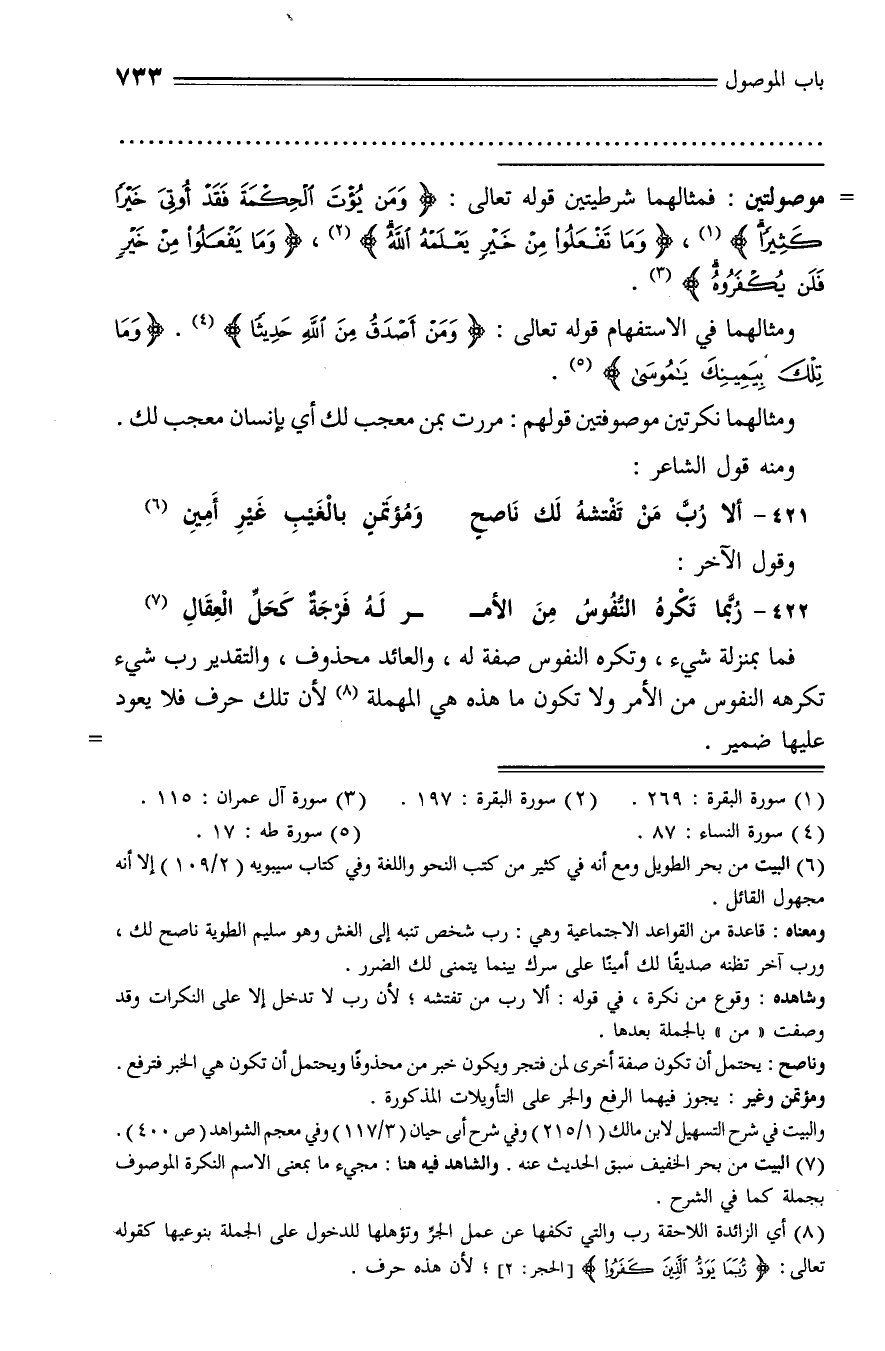 باب الموصول ٧٣٣
= موصولتين : فمثالهما شرطيتين قوله تعالى : ﴿ وَمَن يُؤْتَ ٱلْحِكْمَةَ فَقَدْ أُوتِيَ خَيْرًا
كَثِيرًا ﴾ (١) ، ﴿ وَمَا تَفْعَلُوا۟ مِنْ خَيْرٍ يَعْلَمْهُ ٱللَّهُ ﴾ (٢) ، ﴿ وَمَا يَفْعَلُوا۟ مِنْ خَيْرٍ
فَلَن يُكْفَرُوهُ ﴾ (٣) .
ومثالهما في الاستفهام قوله تعالى : ﴿ وَمَنْ أَصْدَقُ مِنَ ٱللَّهِ حَدِيثًا ﴾ (٤) . ﴿ وَمَا
تِلْكَ بِيَمِينِكَ يَـٰمُوسَىٰ ﴾ (٥) .
ومثالهما نكرتين موصوفتين قولهم : مررت بمن معجب لك أي بإنسان معجب لك .
ومنه قول الشاعر :
٤٢١ - ألا رُبَّ مَنْ تَفْتشهُ لَك نَاصحٍ وَمُؤتَمنٍ بالْغَيْبِ غَيْرِ أَمِينِ (٦)
وقول الآخر :
٤٢٢ - رُبَّما تَكْرهُ النُّفُوسُ مِنَ الأمـ ـر لَـهُ فَرْجَةٌ كَحَلِّ الْعِقَالِ (٧)
فما بمنزلة شيء ، وتكره النفوس صفة له ، والعائد محذوف ، والتقدير رب شيء
تكرهه النفوس من الأمر ولا تكون ما هذه هي المهملة (٨) لأن تلك حرف فلا يعود
عليها ضمير . =
(١) سورة البقرة : ٢٦٩ . (٢) سورة البقرة : ١٩٧ . (٣) سورة آل عمران : ١١٥ .
(٤) سورة النساء : ٨٧ . (٥) سورة طه : ١٧ .
(٦) البيت من بحر الطويل ومع أنه في كثير من كتب النحو واللغة وفي كتاب سيبويه ( ١٠٩/٢ ) إلا أنه
مجهول القائل .
ومعناه : قاعدة من القواعد الاجتماعية وهي : رب شخص تنبه إلى الغش وهو سليم الطوية ناصح لك ،
ورب آخر تظنه صديقًا لك أمينًا على سرك بينما يتمنى لك الضرر .
وشاهده : وقوع من نكرة ، في قوله : ألا رب من تفتشه ؛ لأن رب لا تدخل إلا على النكرات وقد
وصفت « من » بالجملة بعدها .
وناصح : يحتمل أن تكون صفة أخرى لمن فتجر ويكون خبر من محذوفًا ويحتمل أن تكون هي الخبر فترفع .
ومؤتمن وغير : يجوز فيهما الرفع والجر على التأويلات المذكورة .
والبيت في شرح التسهيل لابن مالك ( ٢١٥/١ ) وفي شرح أبى حيان ( ١١٧/٣ ) وفي معجم الشواهد ( ص ٤٠٠ ) .
(٧) البيت من بحر الخفيف سبق الحديث عنه . والشاهد فيه هنا : مجيء ما بمعنى الاسم النكرة الموصوف
بجملة كما في الشرح .
(٨) أي الزائدة اللاحقة رب والتي تكفها عن عمل الجرِّ وتؤهلها للدخول على الجملة بنوعيها كقوله
تعالى : ﴿ رُّبَمَا يَوَدُّ ٱلَّذِينَ كَفَرُوا۟ ﴾ [ الحجر : ٢ ] ؛ لأن هذه حرف .